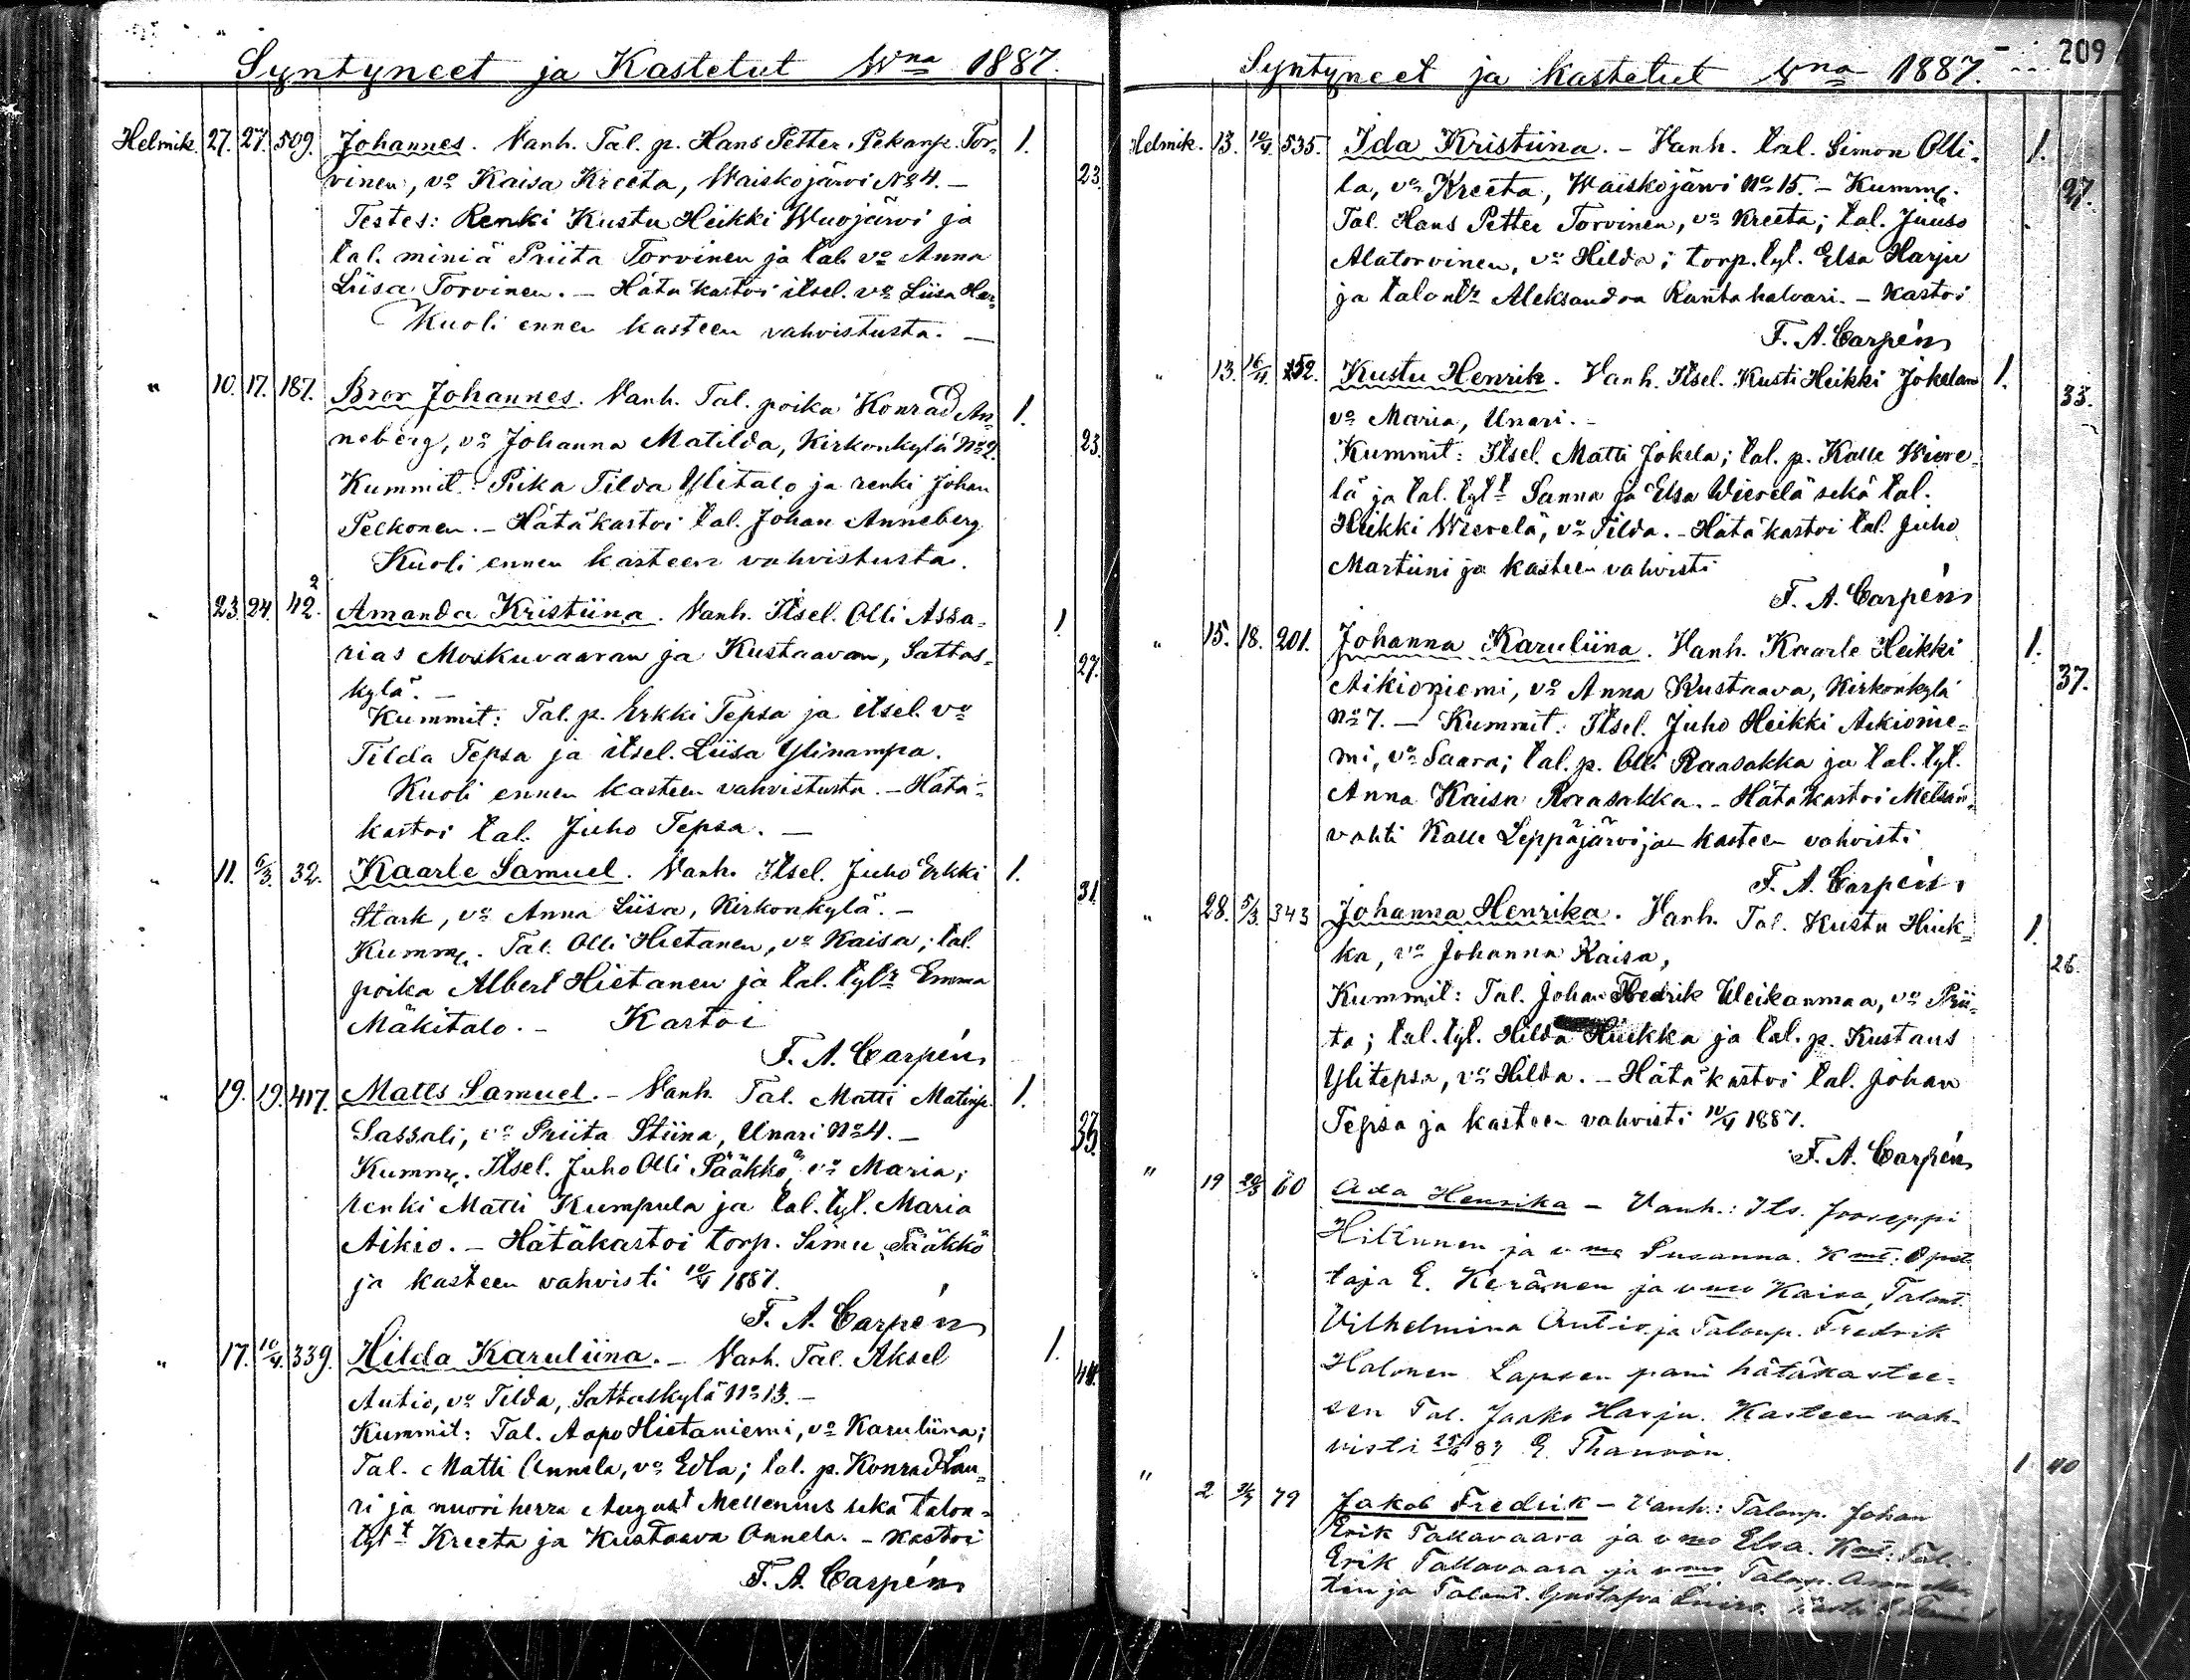 Syntyneet ja Kastetut Wna 1887.
Helmik. 27. 27. 509. Johannes. Vanh. Tal. p. Hans Petter Pekanp. Tor- 1.
vinen, vo Kaisa Kreeta, Waiskojärvi No 4. – 23.
Testes: Renki Kustu Heikki Wuojärvi ja
tal. miniä Priita Torvinen ja tal. vo Anna
Liisa Torvinen. – Hätä kastoi itsel. vo Liisa Har-
Kuoli ennen kasteen vahvistusta. –
" 10. 17. 187. Bror Johannes. Vanh. Tal. poika Konrad An- 1.
neberg, vo Johanna Matilda, Kirkonkylä No 2. 23.
Kummit: Piika Tilda Ylitalo ja renki Johan
Pelkonen. – Hätäkastoi tal. Johan Anneberg
Kuoli ennen kasteen vahvistusta.
" 23. 24. 42. 2 Amanda Kristiina. Vanh. Itsel. Olli Assa- 1.
rias Moskuvaaran ja Kustaavan, Sattas- 27.
kylä. –
Kummit: Tal. p. Erkki Tepsa ja itsel. vo
Tilda Tepsa ja itsel. Liisa Ylinampa.
Kuoli ennen kasteen vahvistusta. – Hätä-
kastoi tal. Juho Tepsa. –
" 11. 6/3. 32. Kaarle Samuel. Vanh. Itsel. Juho Erkki 1.
Stark, vo Anna Liisa, Kirkonkylä. – 31.
Kumm. Tal. Olli Hietanen, vo Kaisa; tal.
poika Albert Hietanen ja tal. tytr Emma
Mäkitalo. – Kastoi
F. A. Carpén
" 19. 19. 417. Matts Samuel. – Vanh. Tal. Matti Matinp. 1.
Sassali, vo Priita Stiina, Unari No 4. – 35.
Kumm. Itsel. Juho Olli Pääkkö, vo Maria;
renki Matti Kumpula ja tal. tyt. Maria
Aikio. – Hätäkastoi torp. Simu Pääkkö
ja kasteen vahvisti 10/4 1887.
F. A. Carpén
" 17. 10/4. 339. Hilda Karuliina. – Vanh. Tal. Aksel 1.
Autio, vo Tilda, Sattaskylä No 13. – 44.
Kummit: Tal. Aapo Hietaniemi, vo Karuliina;
Tal. Matti Annela, vo Edla; tal. p. Konrad Lau-
ri ja nuori herra August Mellenius sekä talon-
tytt Kreeta ja Kustaava Onnela. – Kastoi
F. A. Carpén
Syntyneet ja kastetut Wna 1887. 209
Helmik. 13. 10/4. 535. Ida Kristiina. – Vanh. tal. Simon Olli- 1.
la, vo Kreeta, Waiskojärvi No 15. – Kumm. 27.
Tal. Hans Petter Torvinen, vo Kreeta; tal. Juuso
Alatorvinen, vo Hilda; torp. tyt. Elsa Harju
ja talontr Aleksandra Rantahalvari. – Kastoi
F. A. Carpén
" 13. 16/4. 152. Kustu Henrik. Vanh. Itsel. Kusti Heikki Jokelan 1.
vo Maria, Unari. – 33.
Kummit: Itsel. Matti Jokela; tal. p. Kalle Wiere-
lä ja tal. tytt Sanna ja Elsa Wierelä sekä tal.
Heikki Wierelä, vo Tilda. – Hätä kastoi tal. Juho
Martiini ja kasteen vahvisti
F. A. Carpén
" 15. 18. 201. Johanna Karuliina. Vanh. Kaarle Heikki 1.
Aikioniemi, vo Anna Kustaava, Kirkonkylä 37.
No 7. – Kummit: Itsel. Juho Heikki Aikionie-
mi, vo Saara; tal. p. Olli Raasakka ja tal. tyt.
Anna Kaisa Raasakka. – Hätä kastoi Metsän-
vahti Kalle Leppäjärvi ja kasteen vahvisti
F. A. Carpén
" 28. 5/3. 343 Johanna Henrika. Vanh. Tal. Kustu Hiuk- 1.
ka, vo Johanna Kaisa, 26.
Kummit: Tal. Johan Fredrik Weikanmaa, vo Prii-
ta; tal. tyt. Hilda Hiukka ja tal. p. Kustaus
Ylitepsa, vo Hilda. – Hätä kastoi tal. Johan
Tepsa ja kasteen vahvisti 10/4 1887.
F. A. Carpén
" 19 20/3 60 Ada Henrika – Vanh.: Its. Jooseppi
Hiltunen ja vmo Susanna. Kmt: Opet-
taja E. Keränen ja vmo Kaisa, Talont.
Vilhelmina Autio ja Talonp. Fredrik
Halonen Lapsen pani hätäkastee-
sen Tal. Jaako Harju. Kasteen vah-
visti 25/4 87 E.
" 2 79 Jakob Fredrik – Vanh.: Talonp. Johan 1 40
Erik Tallavaara ja vmo Elsa. Kmt: Tal.
Erik Tallavaara ja vmo Talonp.
ja Talont. Gustafva